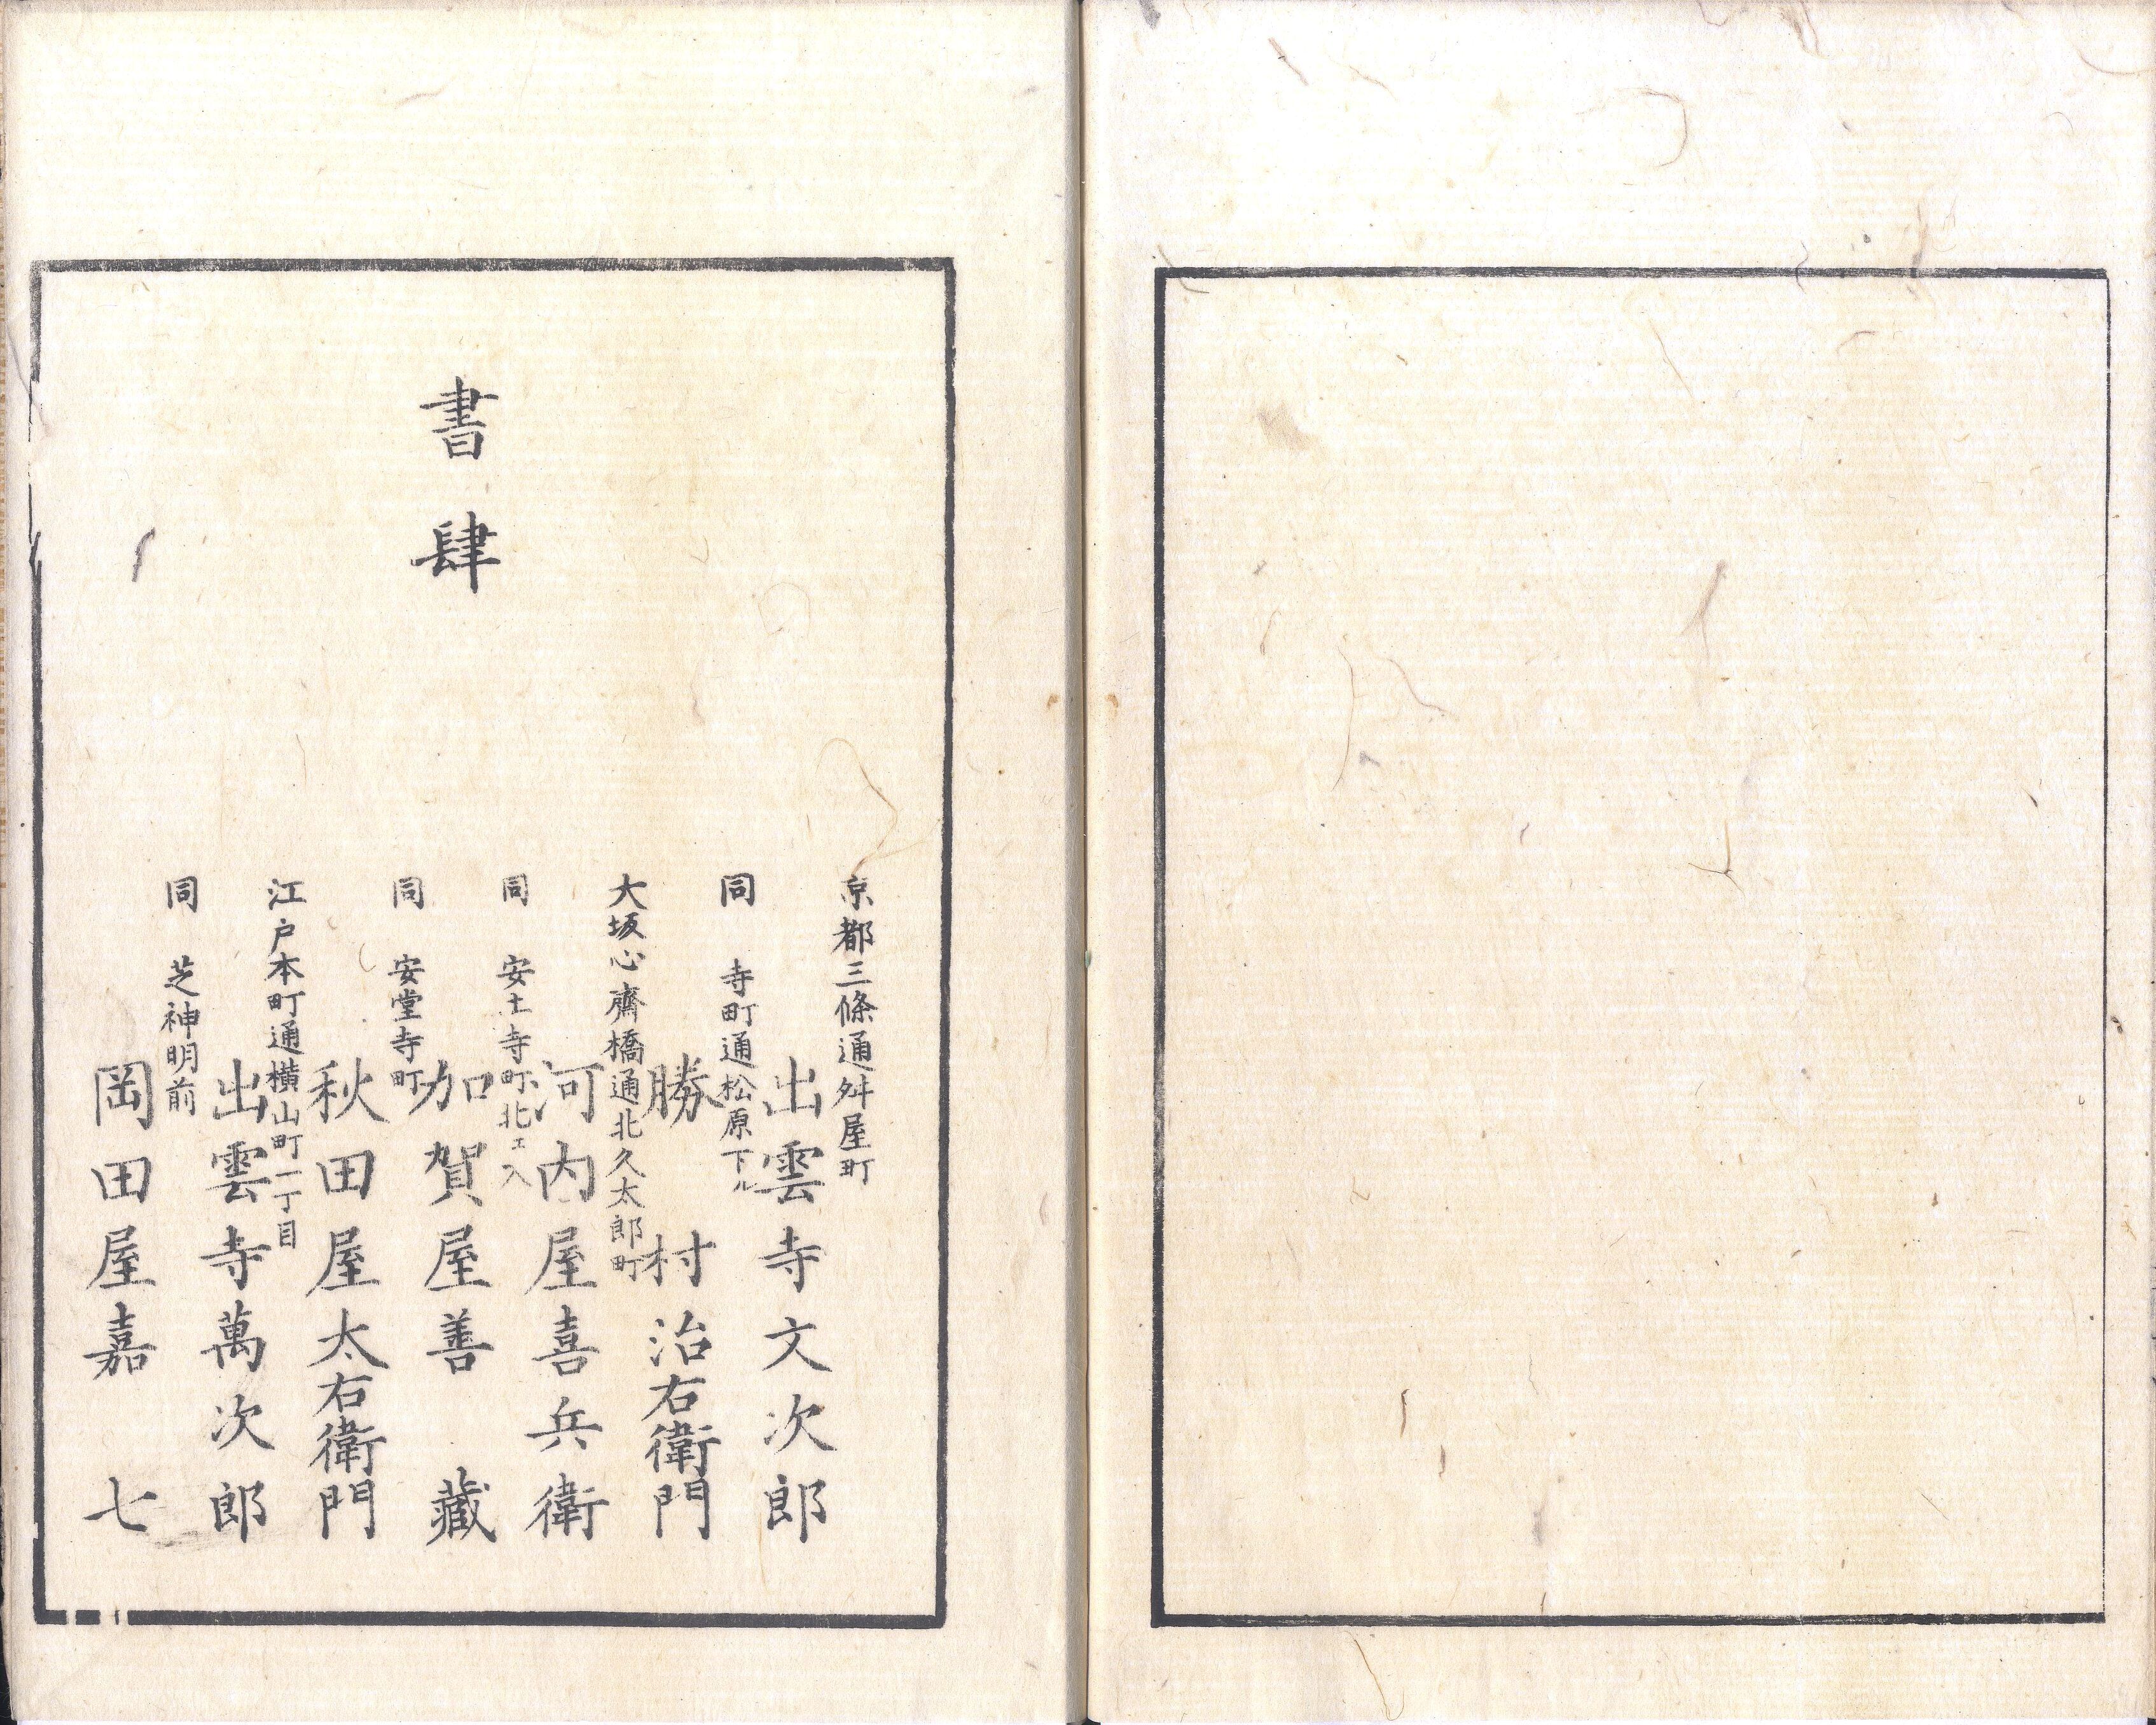 京都三條通舛屋町
出雲寺文次郎
同 寺町通松原下ル
勝村治右衛門
大坂心齋橋通北久太郎町
河内屋喜兵衛
同 安土寺町北エ入
加賀屋善藏
同 安堂寺町
秋田屋太右衛門
江戸本町通横山町一丁目
出雲寺萬次郎
同 芝神明前
岡田屋嘉七
書肆